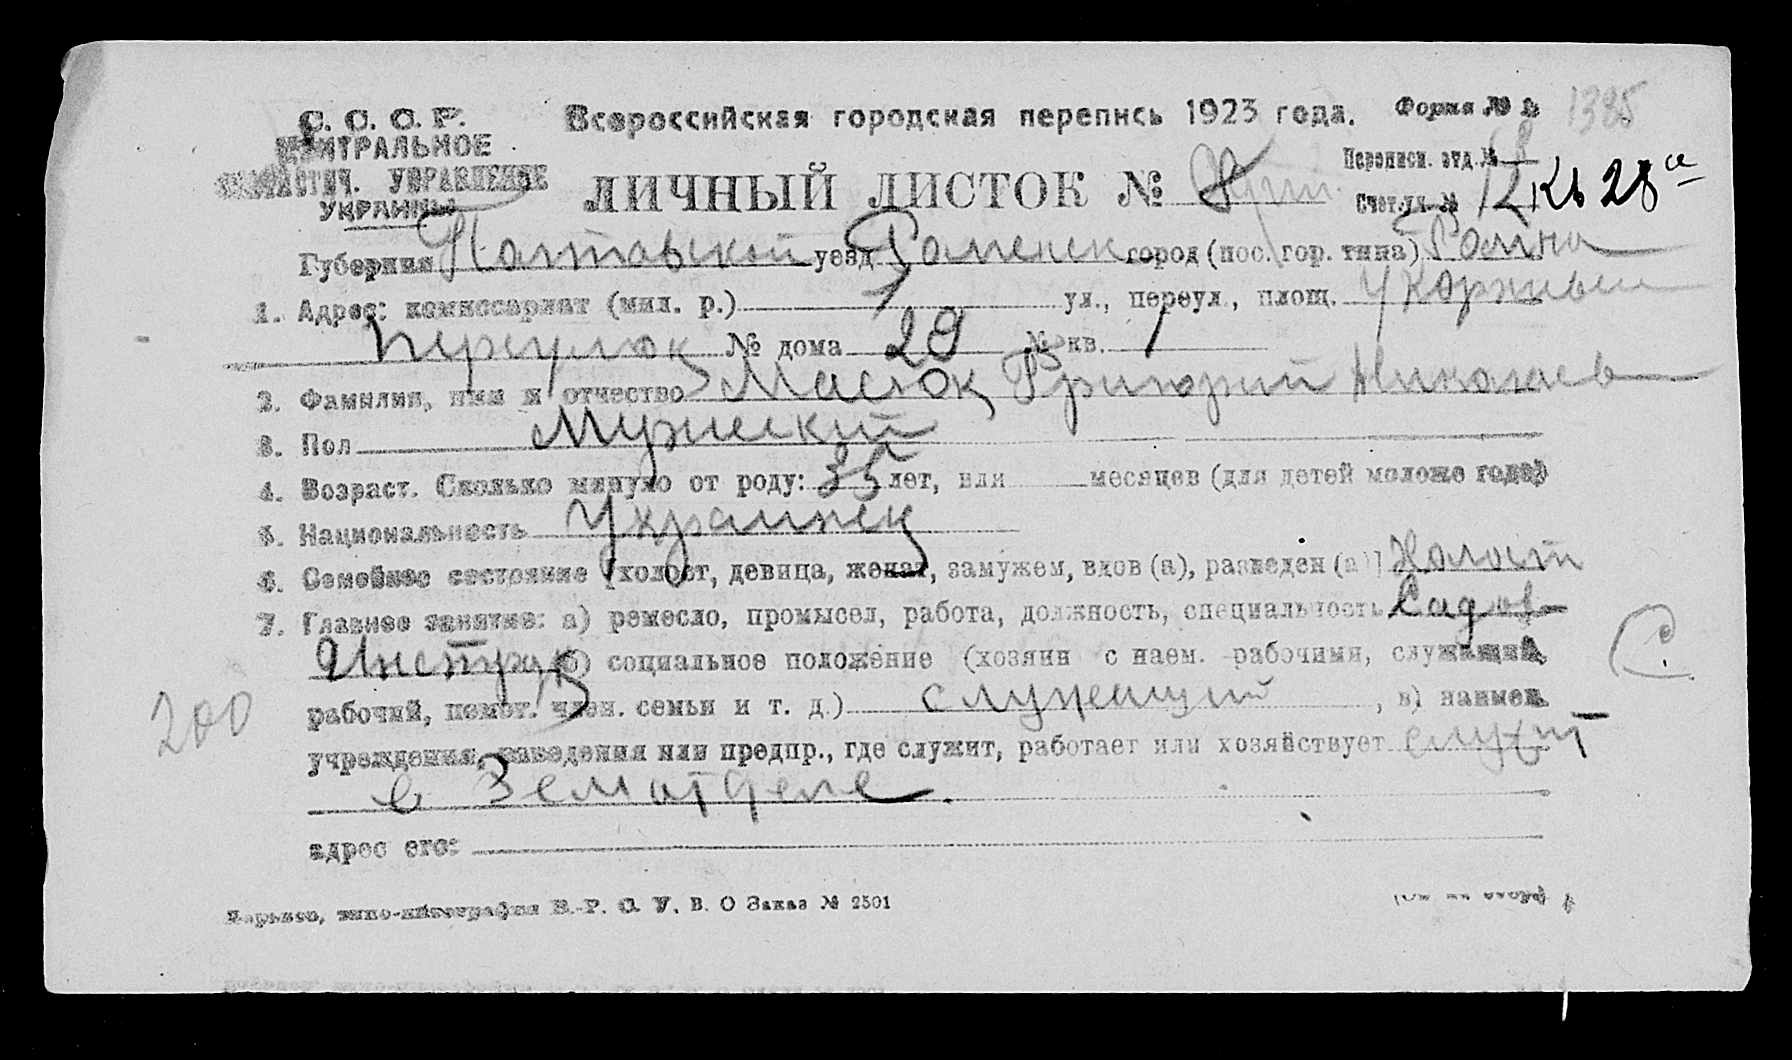 С. С. С. Р.
ЦЕНТРАЛЬНОЕ
СТАТИСТИЧ. УПРАВЛЕНИЕ
УКРАИНЫ
Всероссийская городская перепись 1923 года. Форма № 2 1385
Переписн. отд. № 8
ЛИЧНЫЙ ЛИСТОК № 8
Счет. уч. № 12 Кв 28а
Губерния Полтавской уезд Роменск город (пос. гор. типа) Ромна
1. Адрес: комиссариат (мил. р.) 1 ул., переул., площ.
переулок № дома 29 № кв. 1
2. Фамилия, имя и отчество Масюк Григорий Николаев
3. Пол Мужеский
4. Возраст. Сколько минуло от роду: 35 лет, или месяцев (для детей моложе года)
5. Национальность Украинец
6. Семейное состояние [холост, девица, женат, замужем, вдов (а), разведен (а)] Холост
7. Главное занятие: а) ремесло, промысел, работа, должность, специальность Садов-
Инструк б) социальное положение (хозяин с наем. рабочими, служащий,
рабочий, помог. член. семьи и т. д.) служащий, в) наимен.
учреждения, заведения или предпр., где служит, работает или хозяйствует служит
в Земотделе.
адрес его:
200
С.
Харьков, типо-литография В. Р. С. У. В. О Заказ № 2501